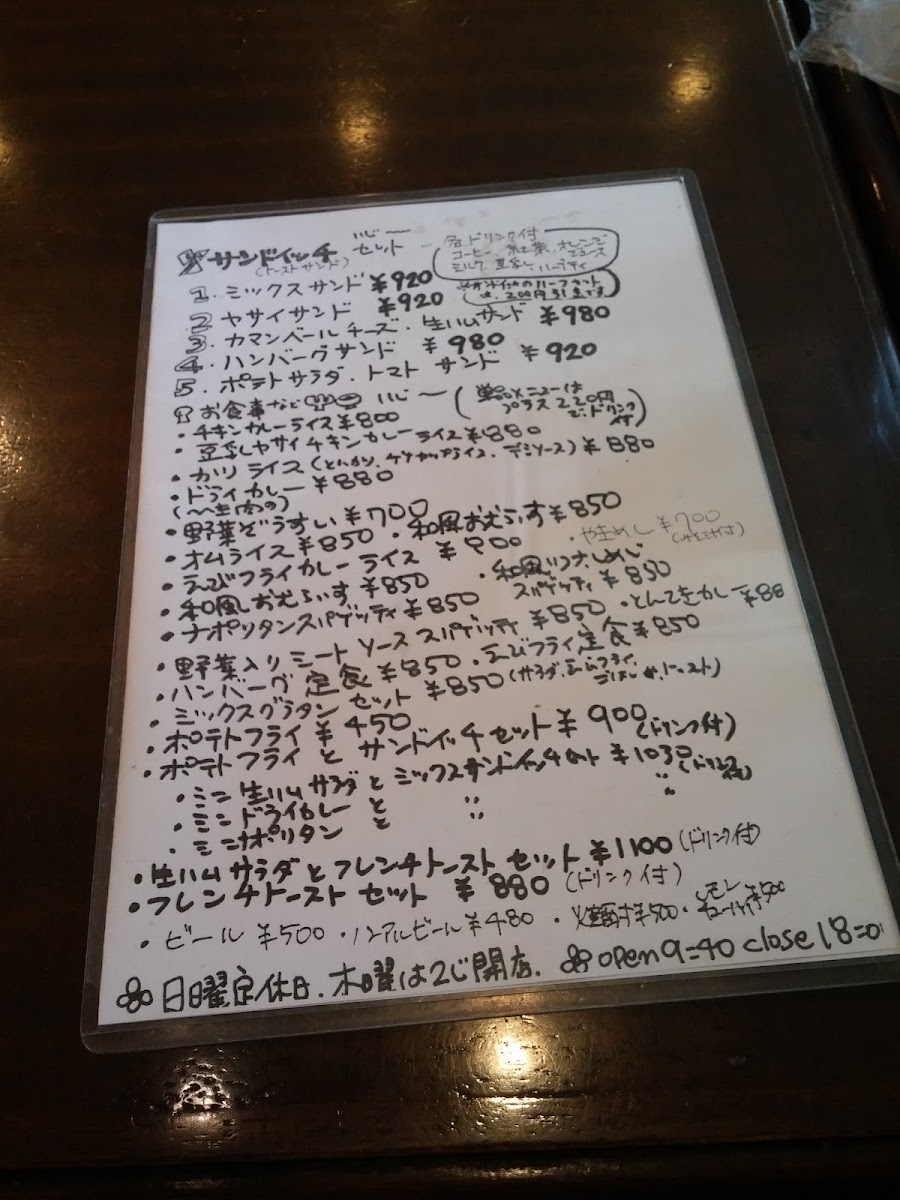 サンドイッチ セット
(トーストサンド)
各ドリンク付
コーヒー、紅茶、オレンジジュース
ミルク、豆乳、ハーブティ
1. ミックスサンド ¥920
※サンドイッチのハーフカットは、200円引きです
2 ヤサイサンド ¥920
3. カマンベールチーズ・生ハムサンド ¥980
4. ハンバーグサンド ¥980
5. ポテトサラダ・トマト サンド ¥920
お食事など
(単品メニューはプラス220円でドリンク付)
・チキンカレーライス ¥800
・豆乳ヤサイチキンカレーライス ¥880
・カツライス(とんかつ、ケチャップライス、デミソース) ¥880
・ドライカレー ¥880
・野菜ぞうすい ¥700 ・和風おむらいす ¥850
・オムライス ¥850 ・やきめし ¥700
・えびフライカレーライス ¥900
・和風おむらいす ¥850 ・和風ツナ、しめじスパゲッティ ¥850
・ナポリタンスパゲッティ ¥850
・野菜入りミートソーススパゲッティ ¥850 ・とんてきカレー ¥88
・ハンバーグ定食 ¥850 ・えびフライ定食 ¥850
・ミックスグラタンセット ¥850
・ポテトフライ ¥450
・ポテトフライとサンドイッチセット ¥900(ドリンク付)
・ミニ生ハムサラダとミックスサンドイッチセット ¥1030(ドリンク付)
・ミニドライカレーと 〃 〃
・ミニナポリタンと 〃
・生ハムサラダとフレンチトーストセット ¥1100(ドリンク付)
・フレンチトーストセット ¥880(ドリンク付)
・ビール ¥500 ・ノンアルビール ¥480 ・ ¥500 ・ ¥500
日曜定休日. 木曜は2じ開店. open 9=40 close 18=0